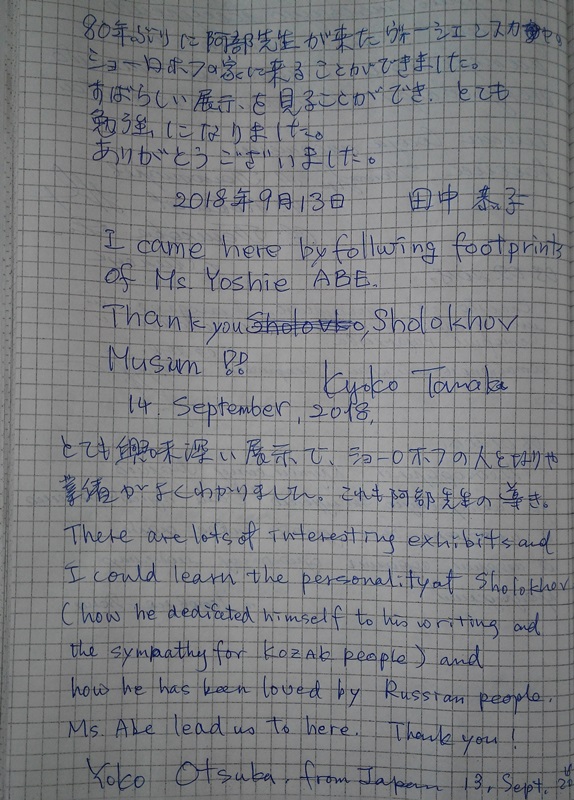 80年ぶりに阿部先生が来たヴョーシェンスカヤの
ショーロホフの家に来ることができました。
すばらしい展示を見ることができ、とても
勉強になりました。
ありがとうございました。
2018年9月13日 田中 恭子
I came here by follwing footprints
of Ms. Yoshie ABE.
Thank you Sholovko, Sholokhov
Musum !!
Kyoko Tanaka
14. September, 2018,
とても興味深い展示で、ショーロホフの人となりや
業績がよくわかりました。これも阿部先生の導き。
There are lots of interesting exhibits and
I could learn the personality at Sholokhov
(how he dedicated himself to his writing and
the sympathy for Kozak people) and
how he has been loved by Russian people.
Ms. Abe lead us to here. Thank you!
Yoko Otsuka, from Japan 13, Sept.